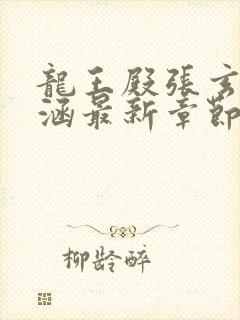 龍王殿張玄
涵最新章節
柳龄醉